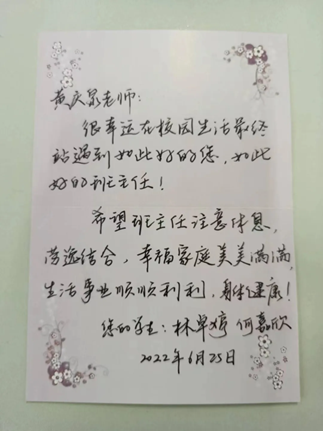 黄庆泉老师：
很幸运在校园生活最终
站遇到如此好的您，如此
好的班主任！
希望班主任注意休息，
劳逸结合，幸福家庭美美满满，
生活事业顺顺利利，身体健康！
您的学生：林单婷 何嘉欣
2022年6月25日